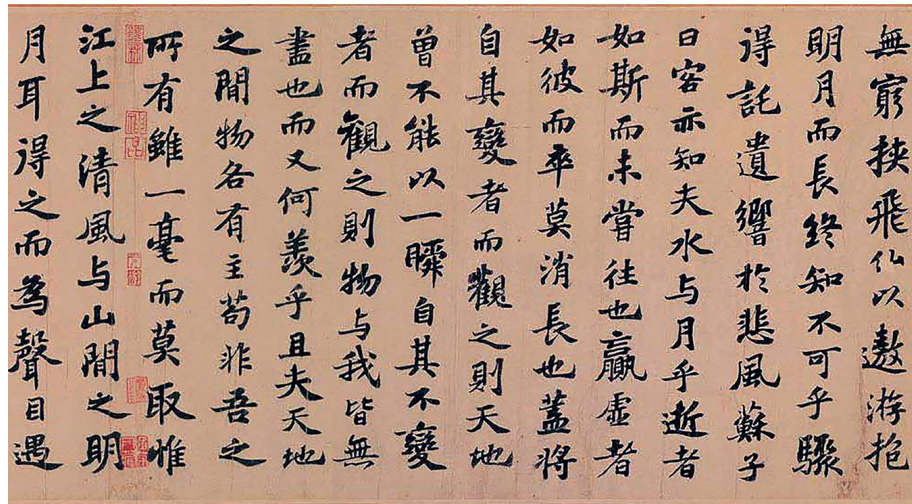 無窮挾飛仙以遨游抱
明月而長終知不可乎驟
得託遺響於悲風蘇子
曰客亦知夫水与月乎逝者
如斯而未嘗往也贏虛者
如彼而卒莫消長也蓋將
自其變者而觀之則天地
曾不能以一瞬自其不變
者而觀之則物与我皆無
盡也而又何羨乎且夫天地
之間物各有主苟非吾之
所有雖一毫而莫取惟
江上之清風与山間之明
月耳得之而為聲目遇